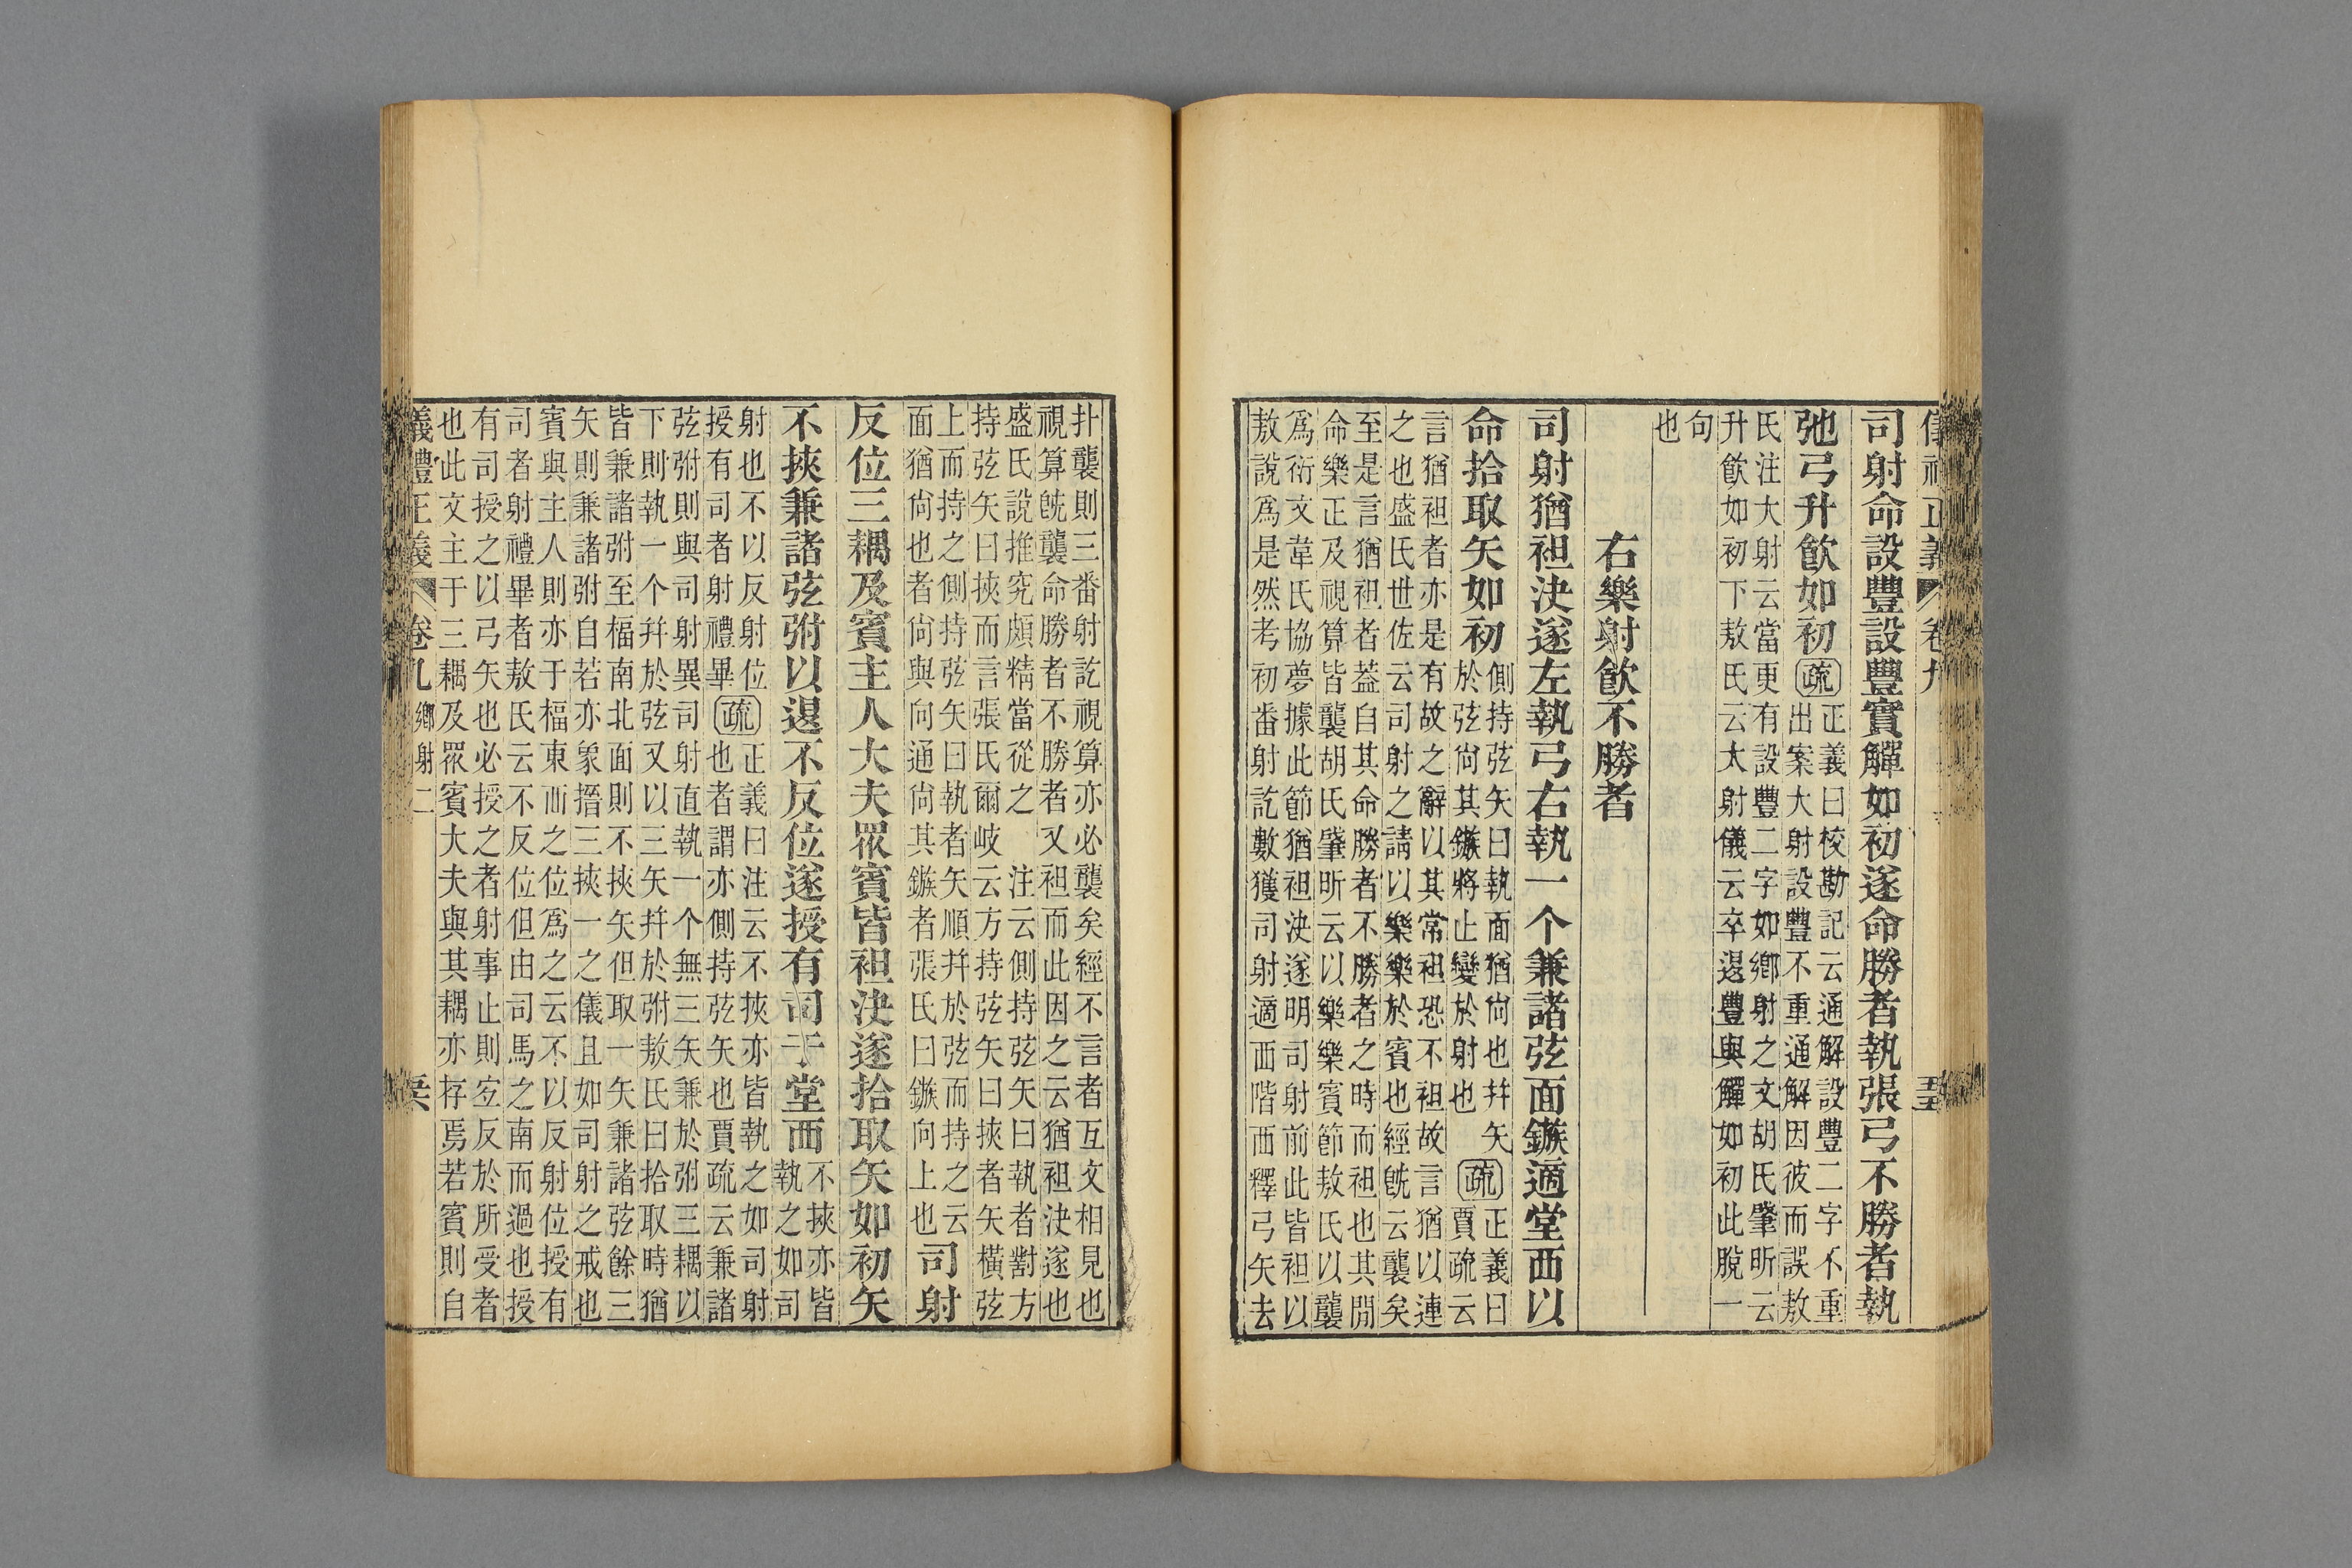 司射命設豐設豐實觶如初遂命勝者執張弓不勝者執
弛弓升飮如初疏
正義曰校勘記云通解設豐二字不重
出案大射設豐不重通解因彼而誤敖
氏注大射云當更有設豐二字如鄉射之文胡氏肇昕云
升飮如初下敖氏云大射儀云卒退豐與觶如初此脫一
句
也
右樂射飮不勝者
司射猶袒決遂左執弓右執一个兼諸弦面鏃適堂西以
命拾取矢如初
側持弦矢曰執面猶尙也幷矢
於弦尙其鏃將止變於射也
疏
正義曰
賈疏云
言猶袒者亦是有故之辭以其常袒恐不袒故言猶以連
之也盛氏世佐云司射之請以樂樂於賓也經旣云襲矣
至是言猶袒者葢自其命勝者不勝者之時而袒也其閒
命樂正及視算皆襲胡氏肇昕云以樂樂賓節敖氏以襲
爲衍文韋氏協夢據此節猶袒決遂明司射前此皆袒以
敖說爲是然考初番射訖數獲司射適西階西釋弓矢去
扑襲則三番射訖視算亦必襲矣經不言者互文相見也
視算旣襲命勝者不勝者又袒而此因之云猶袒決遂也
盛氏說推究頗精當從之　注云側持弦矢曰執者對方
持弦矢曰挾而言張氏爾岐云方持弦矢曰挾者矢橫弦
上而持之側持弦矢曰執者矢順幷於弦而持之云
面猶尙也者尙與向通尙其鏃者張氏曰鏃向上也
司射
反位三耦及賓主人大夫眾賓皆袒決遂拾取矢如初矢
不挾兼諸弦弣以退不反位遂授有司于堂西
不挾亦皆
執之如司
射也不以反射位
授有司者射禮畢
疏
正義曰注云不挾亦皆執之如司射
也者謂亦側持弦矢也賈疏云兼諸
弦弣則與司射異司射直執一个無三矢兼於弣三耦以
下則執一个幷於弦又以三矢幷於弣敖氏曰拾取時猶
皆兼諸弣至楅南北面則不挾矢但取一矢兼諸弦餘三
矢則兼諸弣自若亦象搢三挾一之儀且如司射之戒也
賓與主人則亦于楅東西之位爲之云不以反射位授有
司者射禮畢者敖氏云不反位但由司馬之南而過也授
有司授之以弓矢也必授之者射事止則空反於所受者
也此文主于三耦及眾賓大夫與其耦亦存焉若賓則自
義禮正義
卷九
鄉射二